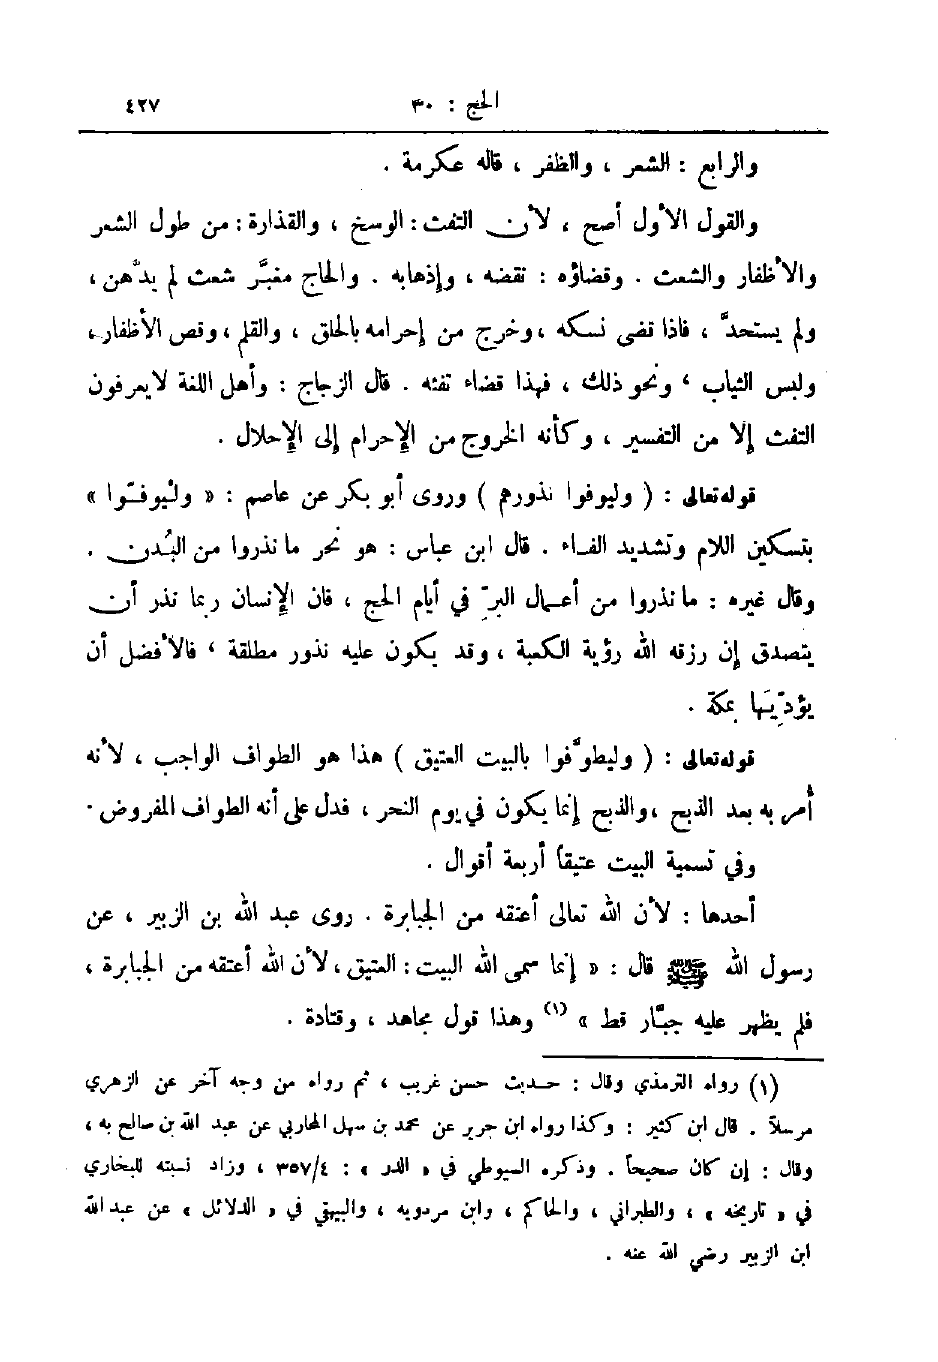 الحج : ٣٠ ٤٢٧
والرابع : الشعر ، والظفر ، قاله عكرمة .
والقول الأول أصح ، لأن التفث : الوسخ ، والقذارة : من طول الشعر
والأظفار والشعث . وقضاؤه : نقضه ، وإذهابه . والحاج مغبَّر شعث لم يدَّهن ،
ولم يستحدَّ ، فاذا قضى نسكه ، وخرج من إحرامه بالحلق ، والقلم ، وقص الأظفار ،
ولبس الثياب ، ونحو ذلك ، فهذا قضاء تفثه . قال الزجاج : وأهل اللغة لا يعرفون
التفث إلا من التفسير ، وكأنه الخروج من الإحرام إلى الإحلال .
قوله تعالى : ( وليوفوا نذورهم ) وروى أبو بكر عن عاصم : « ولْيوفّوا »
بتسكين اللام وتشديد الفاء . قال ابن عباس : هو نحر ما نذروا من البُدن .
وقال غيره : ما نذروا من أعمال البِرّ في أيام الحج ، فان الإنسان ربما نذر أن
يتصدق إن رزقه الله رؤية الكعبة ، وقد يكون عليه نذور مطلقة ، فالأفضل أن
يؤدِّيَها بمكة .
قوله تعالى : ( وليطوَّفوا بالبيت العتيق ) هذا هو الطواف الواجب ، لأنه
أُمر به بعد الذبح ، والذبح إنما يكون في يوم النحر ، فدل على أنه الطواف المفروض .
وفي تسمية البيت عتيقاً أربعة أقوال .
أحدها : لأن الله تعالى أعتقه من الجبابرة . روى عبد الله بن الزبير ، عن
رسول الله ﷺ قال : « إنما سمى الله البيت : العتيق ، لأن الله أعتقه من الجبابرة ،
فلم يظهر عليه جبَّار قط » (١) وهذا قول مجاهد ، وقتادة .
(١) رواه الترمذي وقال : حديث حسن غريب ، ثم رواه من وجه آخر عن الزهري
مرسلاً . قال ابن كثير : وكذا رواه ابن جرير عن محمد بن سهل المحاربي عن عبد الله بن صالح به ،
وقال : إن كان صحيحاً . وذكره السيوطي في « الدر » : ٣٥٧/٤ ، وزاد نسبته للبخاري
في « تاريخه » ، والطبراني ، والحاكم ، وابن مردويه ، والبيهقي في « الدلائل » عن عبد الله
ابن الزبير رضي الله عنه .